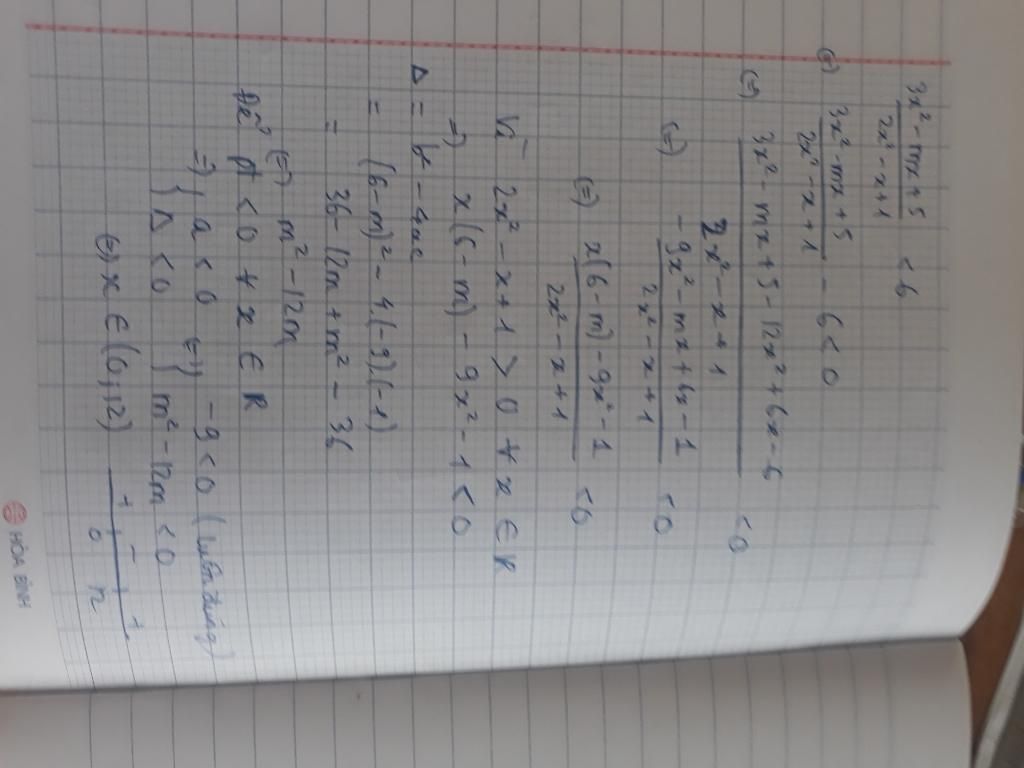 3x² - mx + 5 / 2x² - x + 1 < 6
(=) 3x² - mx + 5 / 2x² - x + 1 - 6 < 0
(=) 3x² - mx + 5 - 12x² + 6x - 6 / 2x² - x + 1 < 0
(=) -9x² - mx + 6x - 1 / 2x² - x + 1 < 0
(=) x(6 - m) - 9x² - 1 / 2x² - x + 1 < 0
Vì 2x² - x + 1 > 0 ∀ x ∈ R
=) x(6 - m) - 9x² - 1 < 0
Δ = b² - 4ac
= (6-m)² - 4.(-9).(-1)
= 36 - 12m + m² - 36
(=) m² - 12m
Để pt < 0 ∀ x ∈ R
=) { a < 0 (=) { -9 < 0 (luôn đúng)
{ Δ < 0 { m² - 12m < 0
(=) x ∈ (0; 12) + - +
0 12
HÒA BÌNH